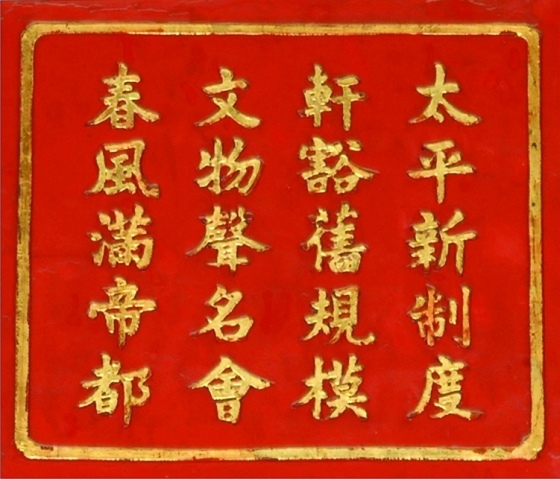 太平新制度
軒豁舊規模
文物聲名會
春風滿帝都